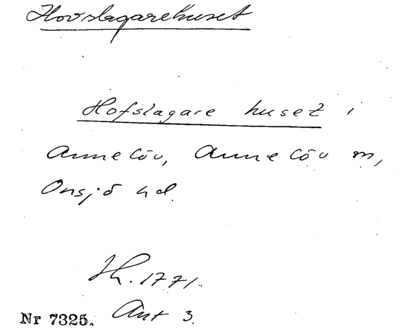 Hovslagarehuset
Hofslagare huset i
Annelöv, Annelöv sn,
Onsjö hd.
Hh. 1771.
Nr 7325. Ant 3.